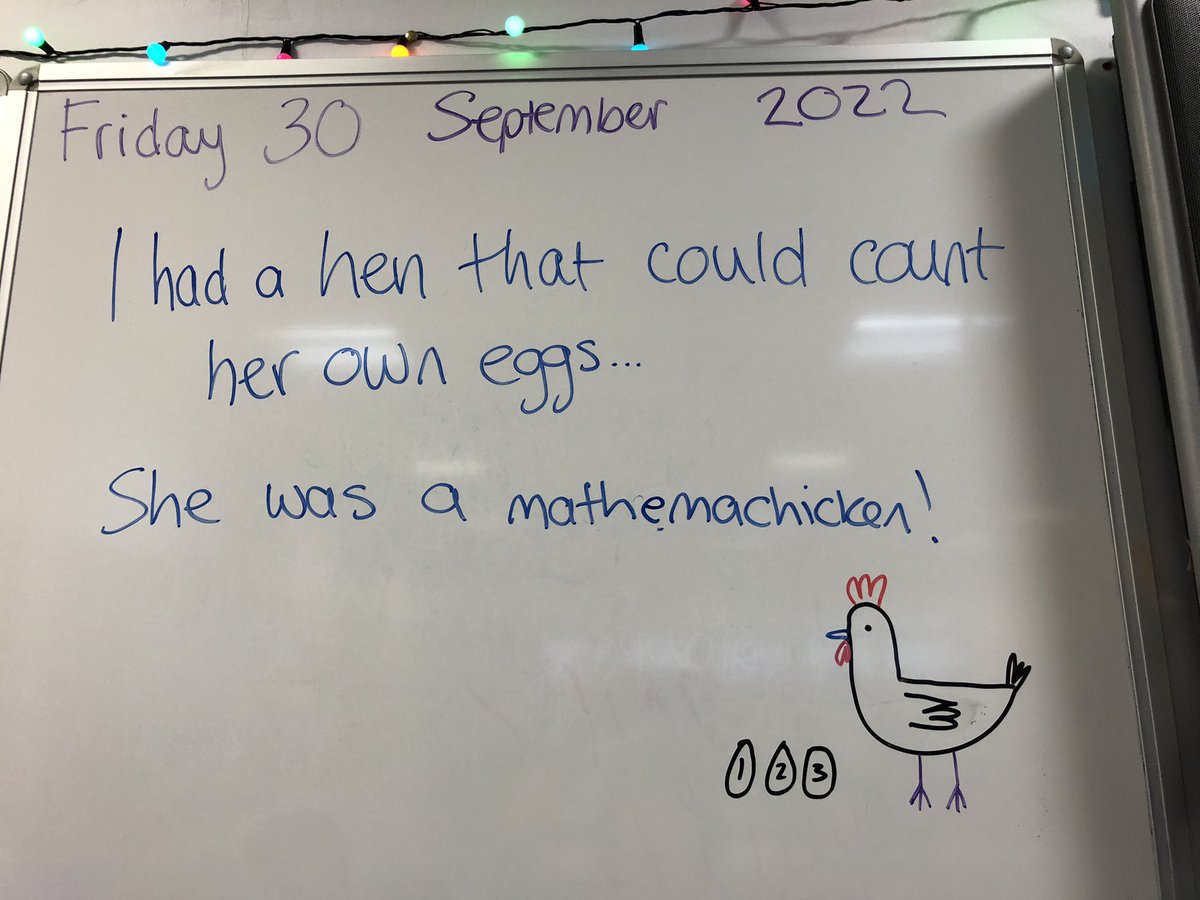 Friday 30 September 2022
I had a hen that could count
her own eggs...
She was a mathemachicken!
1 2 3